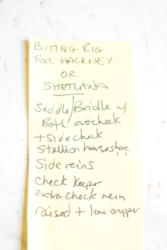 BITING RIG
FOR HACKNEY
OR
SHETLAND
Saddle/Bridle w/
Both overcheck
+ Side check
Stallion horseshoe
Side reins
check keeper
extra check rein
raised + low crupper